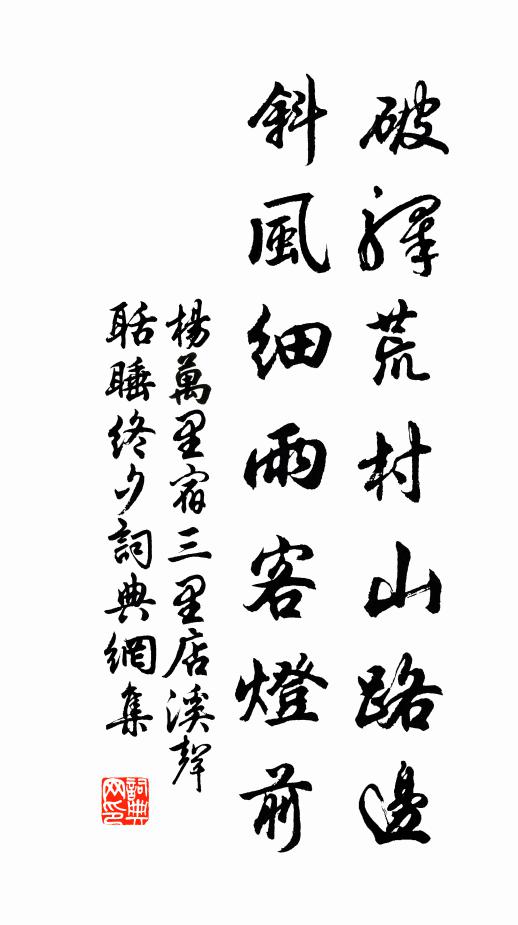 破驛荒村山路邊
斜風細雨客燈前
楊萬里宿三里店溪聲
聒睡終夕詞典網集
詞典
网印